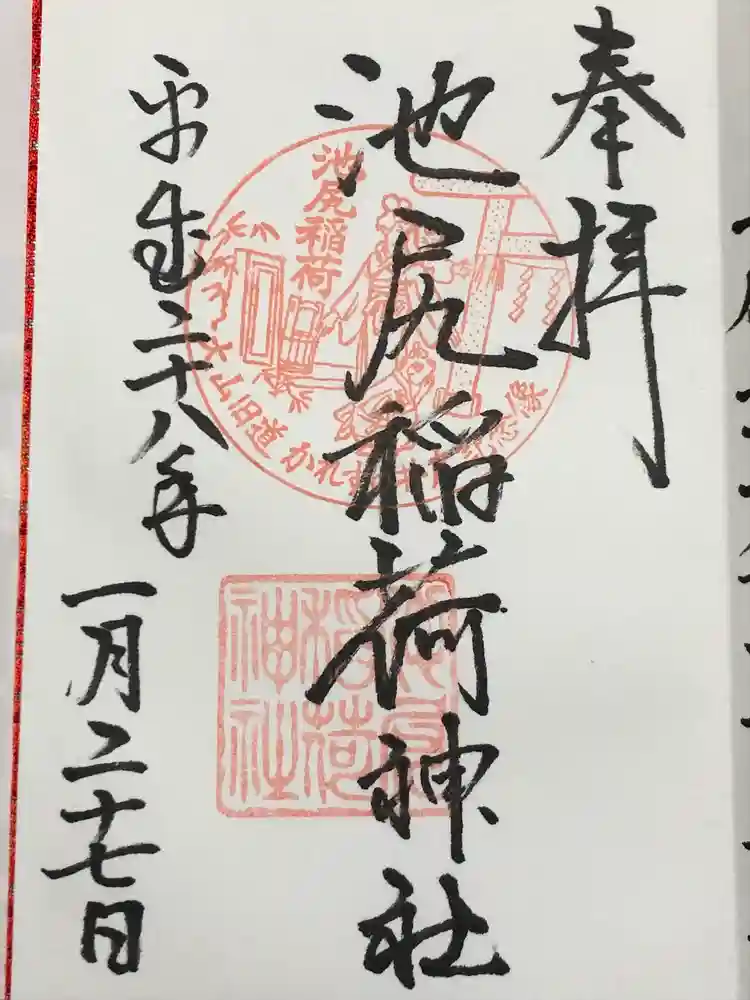 奉拝
池尻稲荷神社
平成二十八年
一月二十七日
池尻稲荷
大山旧道
池尻稲荷神社